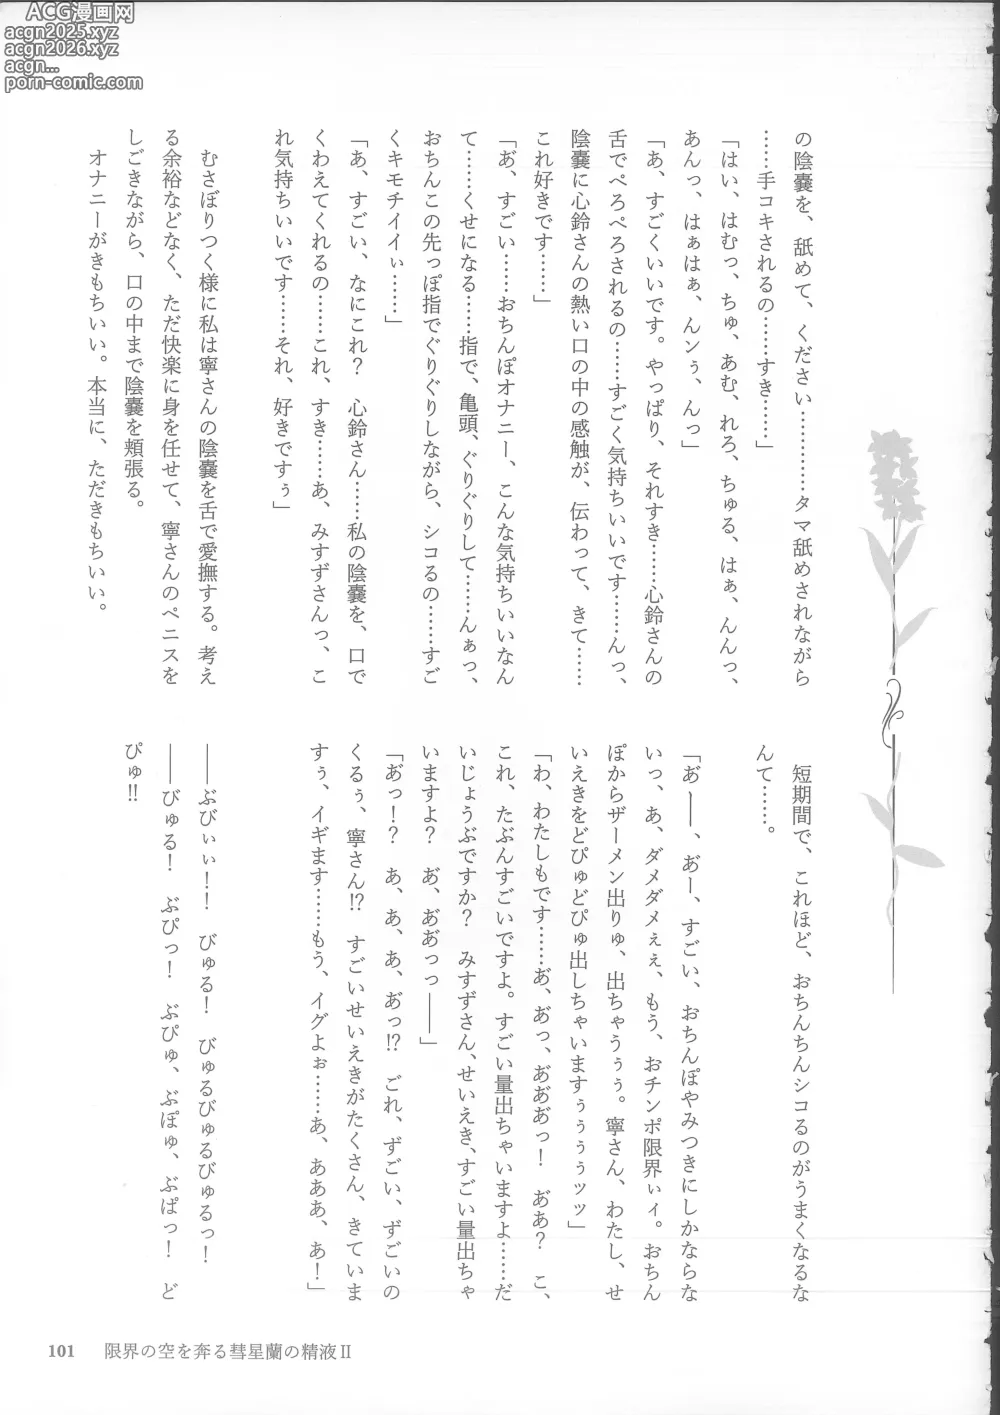 ACG漫画网
acgn2025.xyz
acgn2026.xyz
acgn...
porn-comic.com
の陰嚢を、舐めて、ください…………タマ舐めされながら
……手コキされるの……すき……」
「はい、はむっ、ちゅ、あむ、れろ、ちゅる、はぁ、んんっ、
あんっ、はぁはぁ、んンぅ、んっ」
「あ、すごくいいです。やっぱり、それすき……心鈴さんの
舌でぺろぺろされるの……すごく気持ちいいです………んっ、
陰嚢に心鈴さんの熱い口の中の感触が、伝わって、きて……
これ好きです……」
「あ゙、すごい……おちんぽオナニー、こんな気持ちいいなん
て……くせになる……指で、亀頭、ぐりぐりして……んぁっ、
おちんこの先っぽ指でぐりぐりしながら、シコるの……すご
くキモチイイぃ……」
「あ、すごい、なにこれ?　心鈴さん……私の陰嚢を、口で
くわえてくれるの……これ、すき……あ、みすずさんっ、こ
れ気持ちいいです……それ、好きですぅ」
むさぼりつく様に私は寧さんの陰嚢を舌で愛撫する。考え
る余裕などなく、ただ快楽に身を任せて、寧さんのペニスを
しごきながら、口の中まで陰嚢を頬張る。
オナニーがきもちいい。本当に、ただきもちいい。
短期間で、これほど、おちんちんシコるのがうまくなるな
んて……。
「あ゙──、あ゙ー、すごい、おちんぽやみつきにしかならな
いっ、あ、ダメダメぇぇ、もう、おチンポ限界ぃィ。おちん
ぽからザーメン出りゅ、出ちゃうぅぅ。寧さん、わたし、せ
いえきをどぴゅどぴゅ出しちゃいますぅぅぅぅッッ」
「わ、わたしもです……あ゙、あ゙っ、あ゙あ゙あ゙っ!　あ゙あ?　こ、
これ、たぶんすごいですよ。すごい量出ちゃいますよ……だ
いじょうぶですか?　みすずさん、せいえき、すごい量出ちゃ
いますよ?　あ゙、あ゙あ゙っっ──」
「あ゙っ!?　あ、あ、あ、あ゙っ!?　ごれ、ずごい、ずごいの
くるぅ、寧さん!?　すごいせいえきがたくさん、きていま
すぅ、イギます……もう、イグよぉ……あ、あああ、あ!」
──ぶびぃぃ!!　びゅる!　びゅるびゅるびゅるっ!
──びゅる!　ぶぴっ!　ぶぴゅ、ぶぽゅ、ぶぱっ!　ど
ぴゅ!!
101　限界の空を奔る彗星蘭の精液Ⅱ